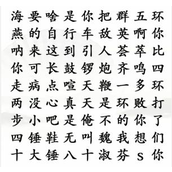 海要啥是你把群五环
燕的自行车敌英啊你
呐来这到引人荟萃比
你可长鼓锣炮齐鸣四
走病点喧天鞭一多环
两没心真天是环败打
步小吧是锤你的你了
四锤鞋无叫魏我想们
十大锤八十淑芬s你